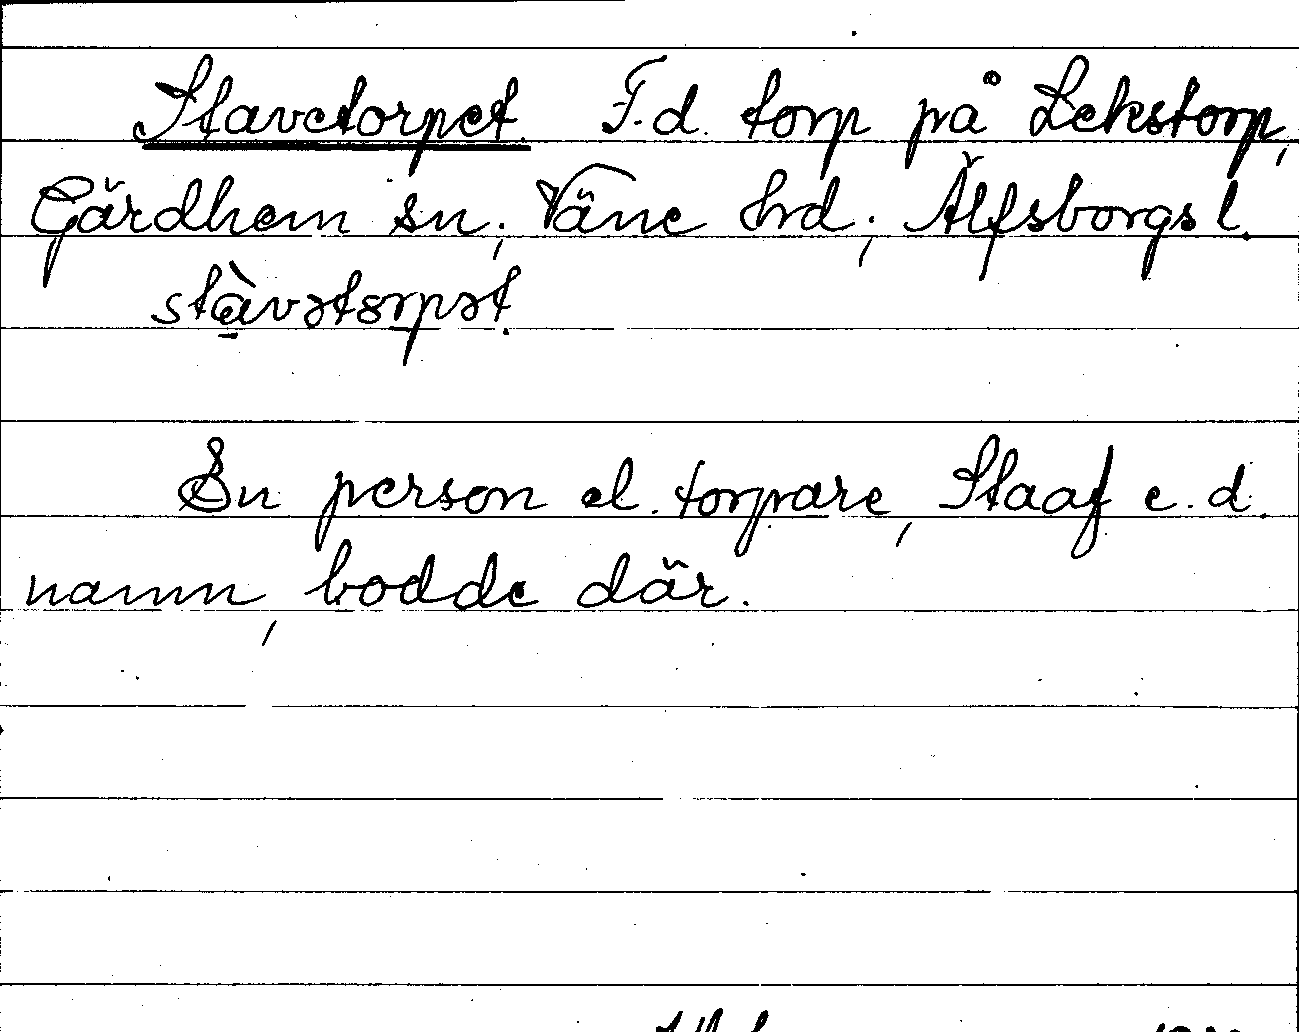 Stavetorpet. F.d. torp på Lekstorp,
Gärdhem sn, Väne hrd, Älfsborgs l.
stàvətorpət.
En person el. torpare, Staaf e.d.
namn, bodde där.